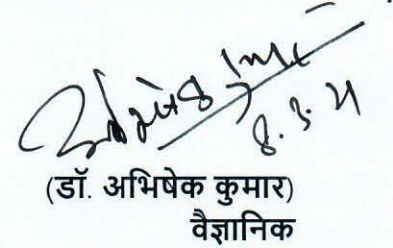 8.3.21
(डॉ. अभिषेक कुमार)
वैज्ञानिक